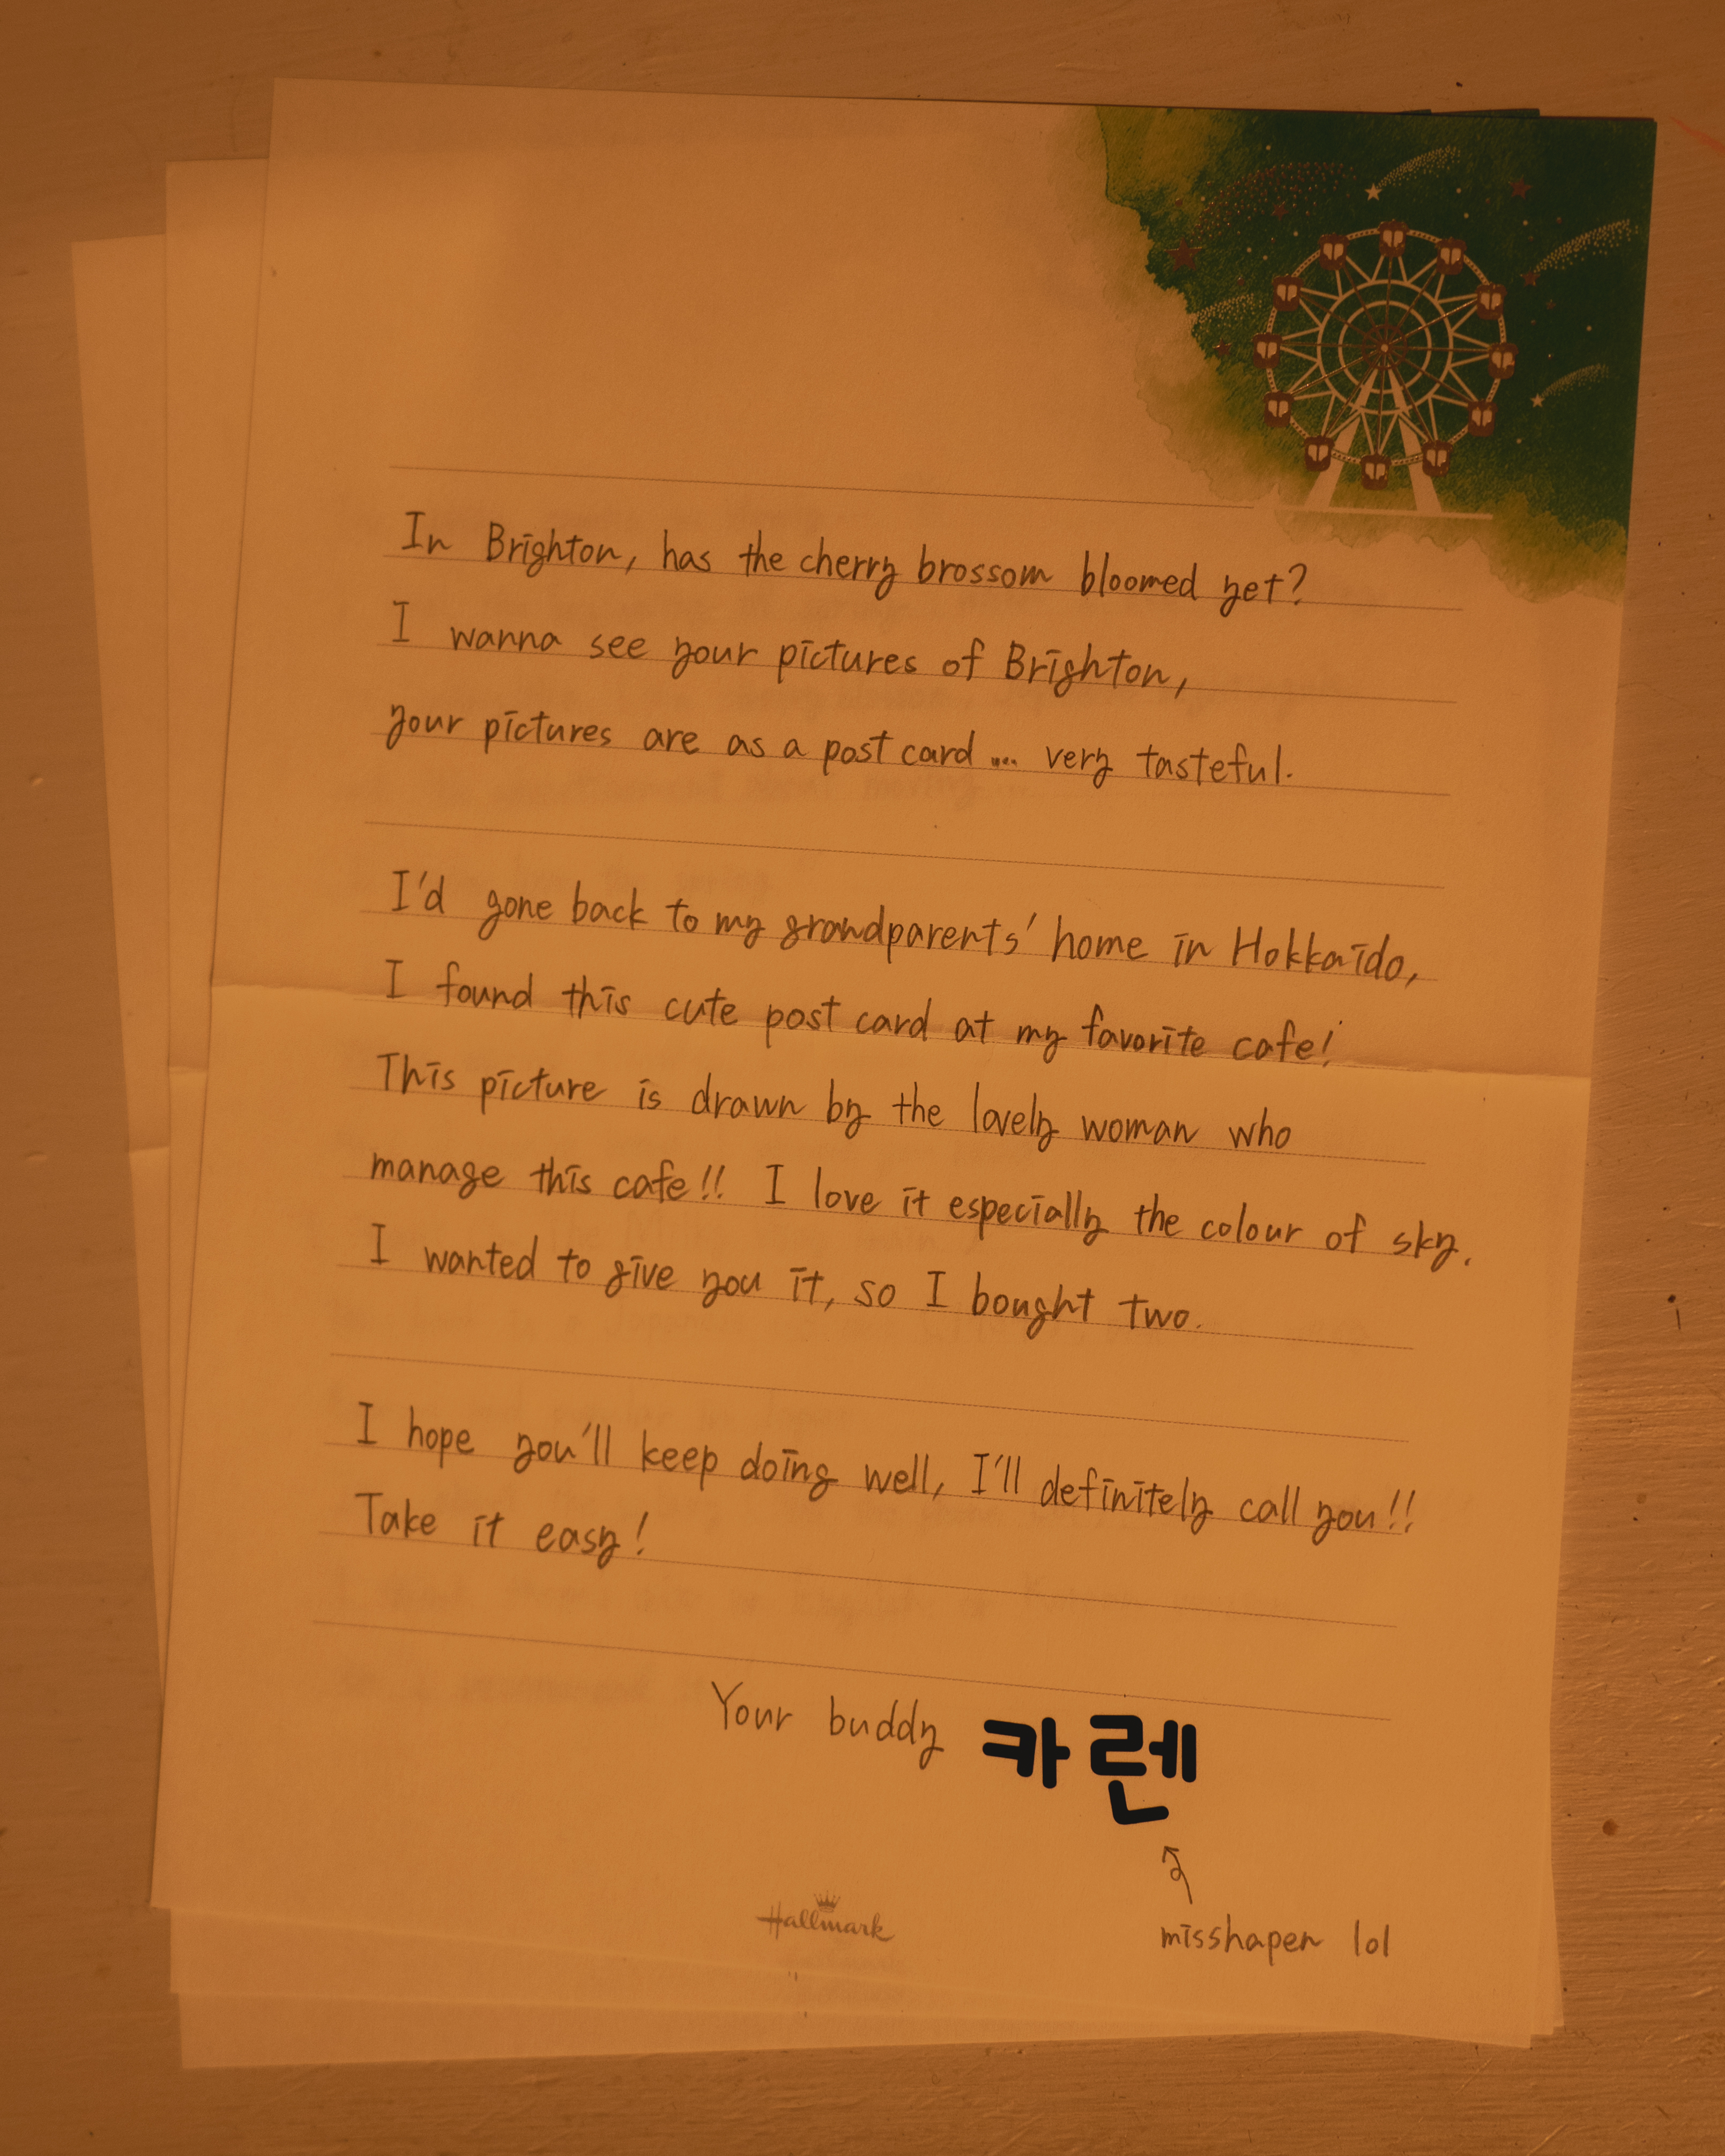 In Brighton, has the cherry brossom bloomed yet?
I wanna see your pictures of Brighton,
your pictures are as a post card ... very tasteful.
I'd gone back to my grandparents' home in Hokkaido,
I found this cute post card at my favorite cafe!
This picture is drawn by the lovely woman who
manage this cafe!! I love it especially the colour of sky.
I wanted to give you it, so I bought two.
I hope you'll keep doing well, I'll definitely call you!!
Take it easy!
Your buddy 카렌
misshapen lol
Hallmark